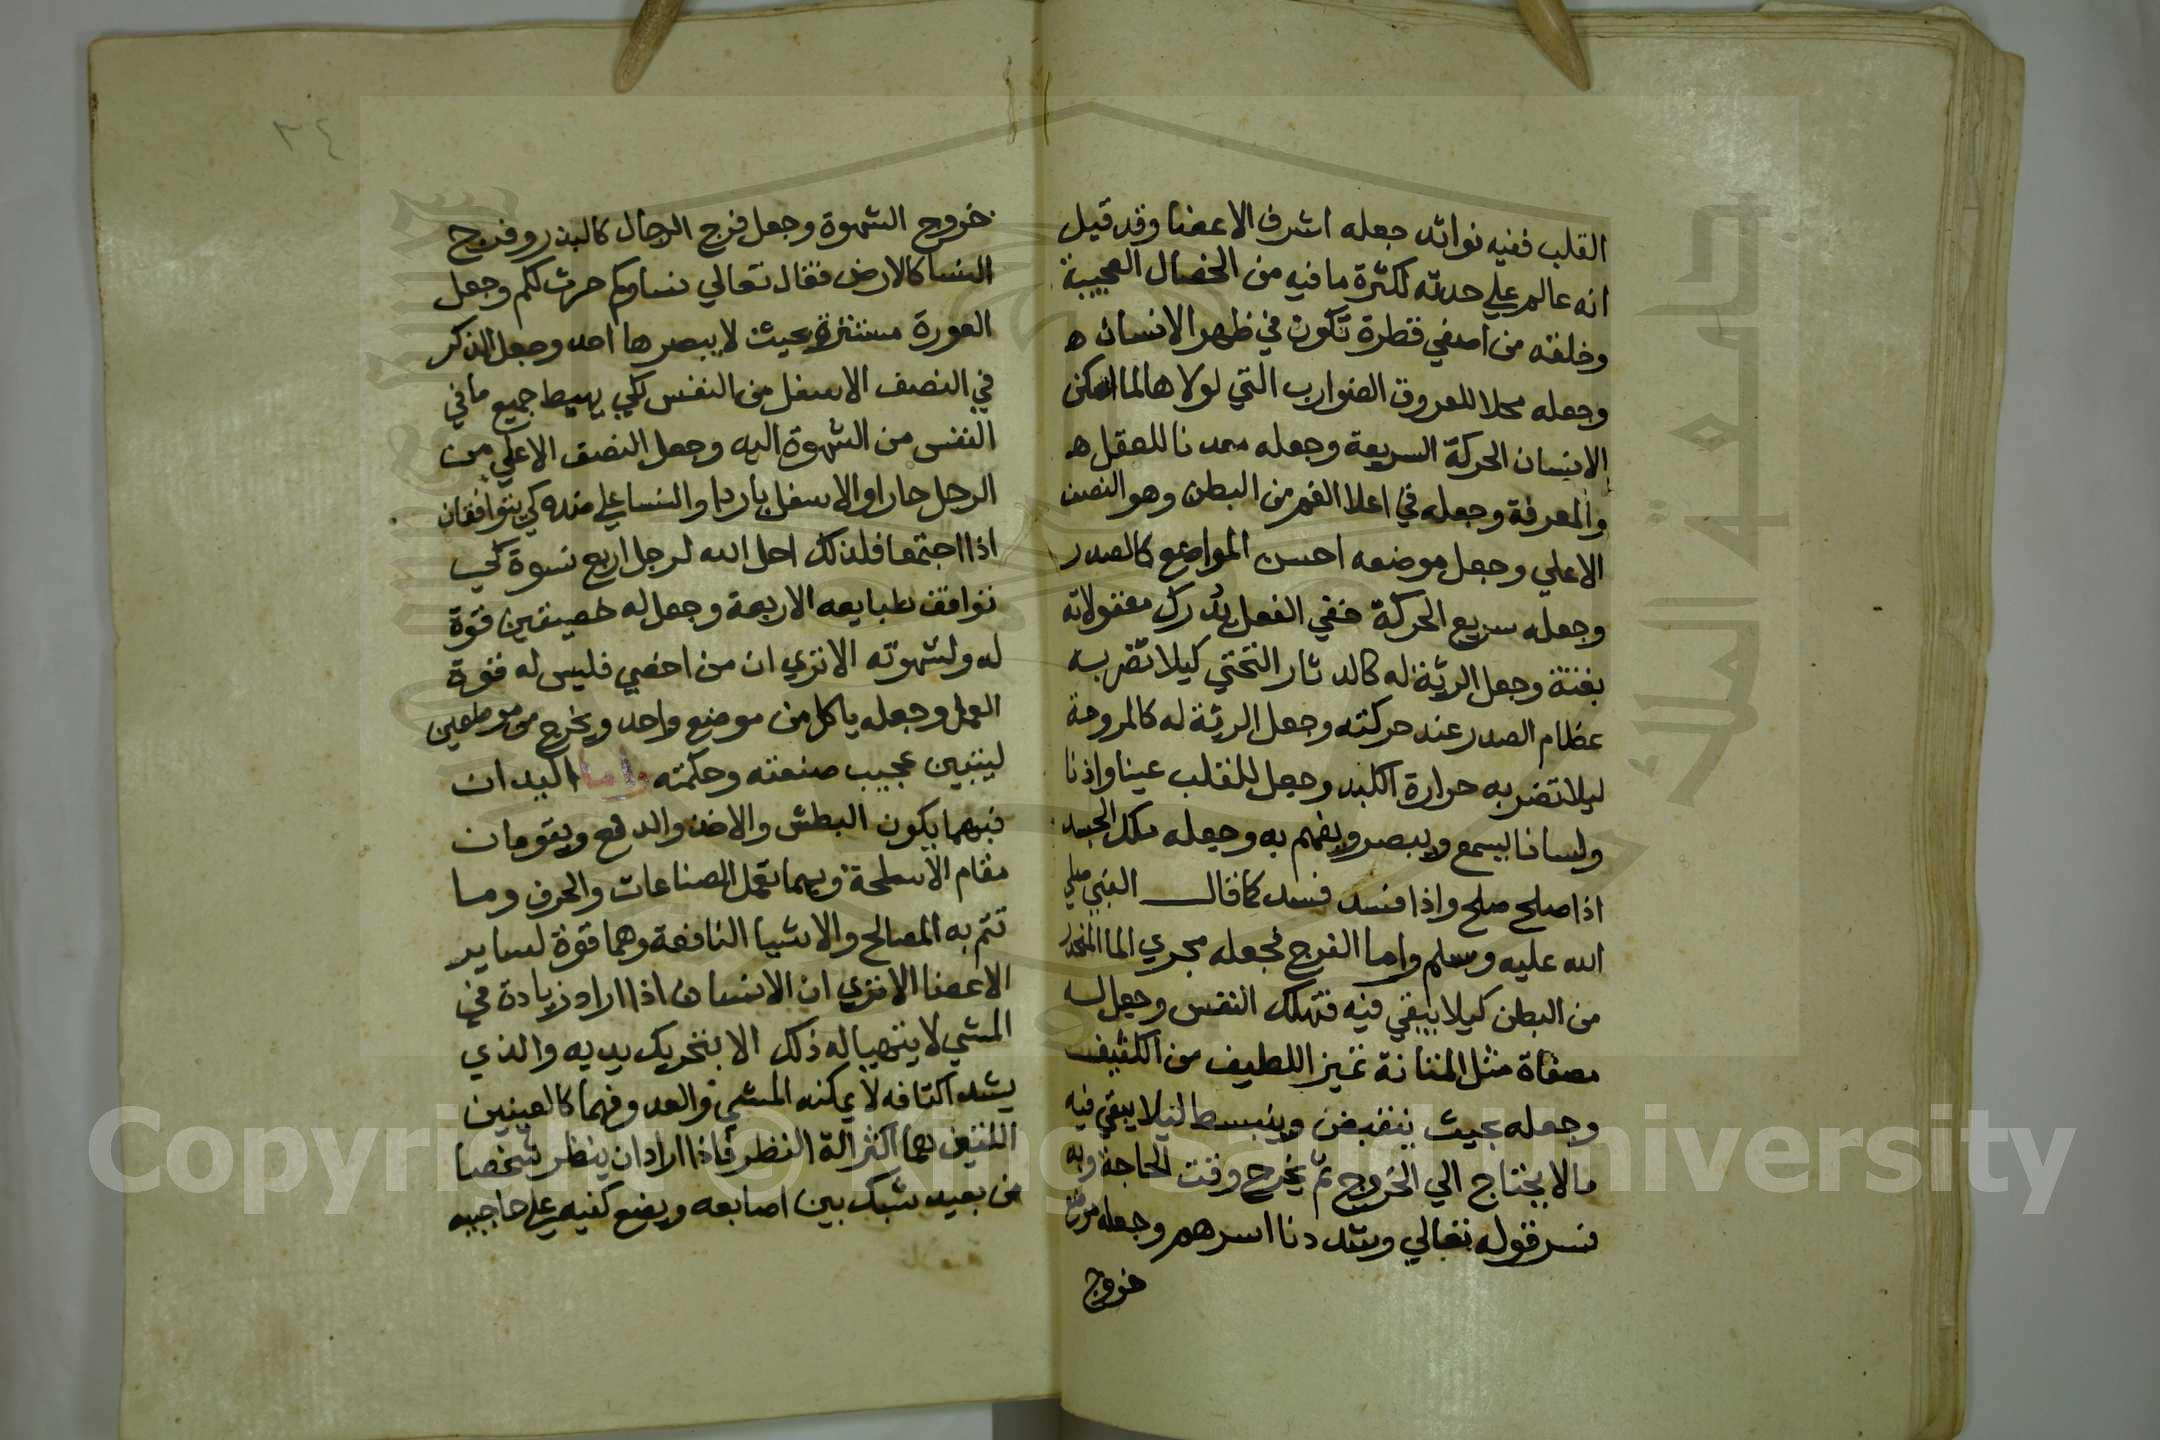 القلب ففيه نوائد جعله اشرف الاعضا وقد قيل
انه عالم علي حدته لكثرة ما فيه من الخصال العجيبة
وخلقه من اصفي قطرة تكون في ظهر الانسان ه
وجعله محلا للعروق الضوارب التي لولاها لما امكن
الانسان الحركة السريعة وجعله معدنا للعقل ه
والمعرفة وجعله في اعلا الفم من البطن وهو النصف
الاعلي وجعل موضعه احسن المواضع كالصدر
وجعله سريع الحركة خفي الفعل يدرك معقولاته
بغتة وجعل الرئة له كالدثار التحتي كيلا تضربه
عظام الصدر عند حركته وجعل الرئة له كالمروحة
ليلا تضر به حرارة الكبد وجعل للقلب عينا واذنا
ولسانا يسمع ويبصر ويفهم به وجعله ملك الجسد
اذا صلح صلح واذا فسد فسد كما قال النبي صلي
الله عليه وسلم واما الفرج فجعله مجري الما المنحدر
من البطن كيلا يبقي فيه فتهلك النفس وجعل له
مصفاة مثل المثانة تميز اللطيف من الكثيف
وجعله بحيث ينقبض وينبسط ليلا يبقي فيه
مالا يحتاج الي الخروج ثم يخرج وقت الحاجة وبه
فسر قوله تعالي وشددنا اسرهم وجعله موضع
خروج
٣٤
خروج الشهوة وجعل فرج الرجال كالبذر وفرج
النسا كالارض فقال تعالي نساوكم حرث لكم وجعل
العورة مستترة بحيث لا يبصرها احد وجعل الذكر
في النصف الاسفل من النفس لكي يهبط جميع ما في
النفس من الشهوة اليه وجعل النصف الاعلي من
الرجل حارا والاسفل باردا والنسا علي ضده كي يتوافقان
اذا اجتمعا فلذلك احل الله لرجل اربع نسوة لكي
توافق طبايعه الاربعة وجعل له خصيتين قوة
له ولشهوته الا تري ان من اخصي فليس له قوة
العمل وجعله ياكل من موضع واحد ويخرج من موضعين
ليتبين عجيب صنعته وحكمته واما اليدان
فبهما يكون البطش والاخذ والدفع ويقومان
مقام الاسلحة وبهما تعمل الصناعات والحرف وما
تتم به المصالح والاشيا النافعة وهما قوة لساير
الاعضا الا تري ان الانسان اذا اراد زيادة في
المشي لا يتهيا له ذلك الا بتحريك يديه والذي
يشد اكتافه لا يمكنه المشي والعدو فهما كالعينين
اللتين هما اكثر الة النظر فاذا اراد ان ينظر شخصا
من بعيد شبك بين اصابعه ويضع كفيه علي حاجبيه
Copyright © King Saud University